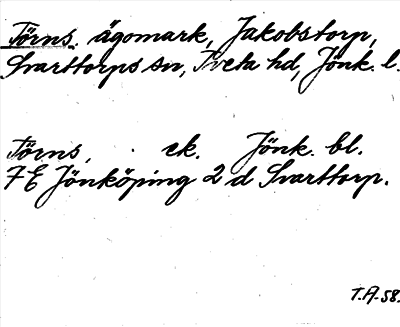 Törns. ägomark, Jakobstorp,
Svarttorps sn, Tveta hd, Jönk. l.
Törns, ek. Jönk. bl.
7 E Jönköping 2 d Svarttorp.
T.A. 58.